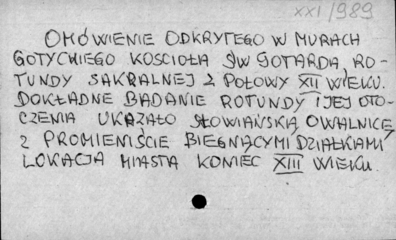 XXI/989
OMÓWIENIE ODKRYTEGO W MURACH
GOTYCKIEGO KOŚCIOŁA ŚW GOTARDA RO-
TUNDY SAKRALNEJ Z POŁOWY XII WIEKU.
DOKŁADNE BADANIE ROTUNDY I JEJ OTO-
CZENIA UKAZAŁO SŁOWIAŃSKĄ OWALNICĘ
Z PROMIENIŚCIE BIEGNĄCYMI DZIAŁKAMI
LOKACJA MIASTA KONIEC XIII WIEKU.